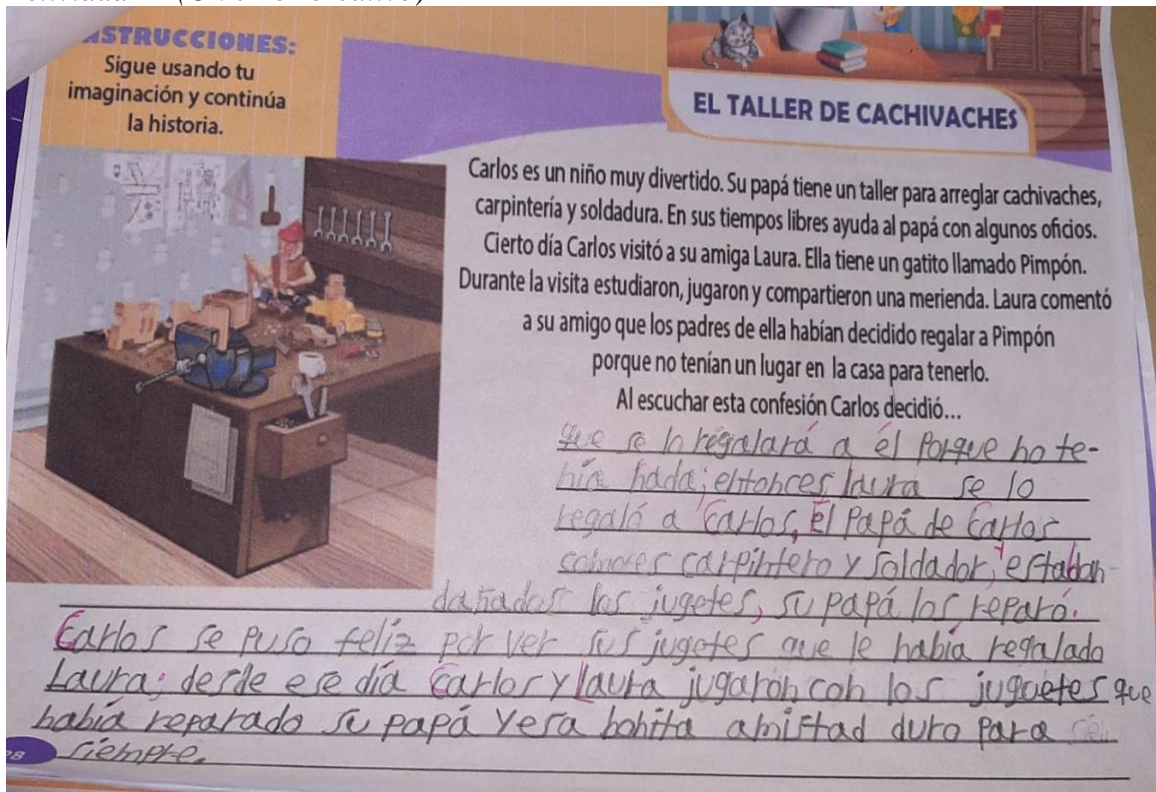 INSTRUCCIONES:
Sigue usando tu
imaginación y continúa
la historia.
EL TALLER DE CACHIVACHES
Carlos es un niño muy divertido. Su papá tiene un taller para arreglar cachivaches,
carpintería y soldadura. En sus tiempos libres ayuda al papá con algunos oficios.
Cierto día Carlos visitó a su amiga Laura. Ella tiene un gatito llamado Pimpón.
Durante la visita estudiaron, jugaron y compartieron una merienda. Laura comentó
a su amigo que los padres de ella habían decidido regalar a Pimpón
porque no tenían un lugar en la casa para tenerlo.
Al escuchar esta confesión Carlos decidió...
que se lo regalará a él porque no te-
nía nada; entonces laura se lo
regaló a Carlos, El Papá de Carlos
como es carpintero y soldador, estaban
dañados los jugetes, su papá los reparó.
Carlos se puso feliz por ver sus jugetes que le había regalado
Laura; desde ese día Carlos y laura jugaron con los juguetes que
había reparado su papá y esa bonita amistad duro para
siempre.
28